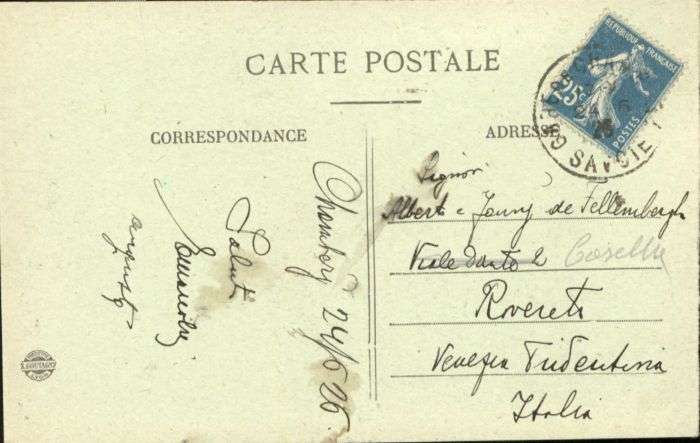 CARTE POSTALE
CORRESPONDANCE
ADRESSE
REPUBLIQUE FRANÇAISE
25c
POSTES
SAVOIE
Chambéry 24/6 26
Salut
Signori
Alberto e Jenny de Fellenbergh
Viale Dante 2 Casella
Rovereto
Venezia Tridentina
Italia
LYON